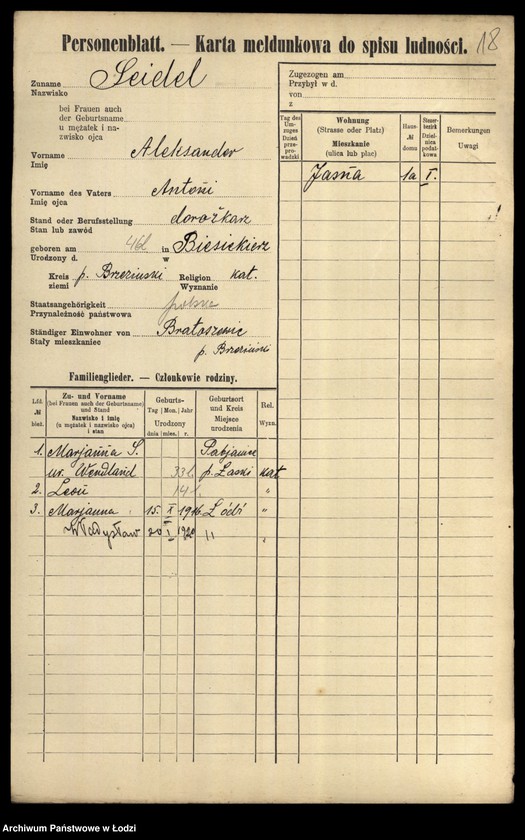 Personenblatt. — Karta meldunkowa do spisu ludności. 18
Zuname Seidel
Nazwisko
bei Frauen auch
der Geburtsname
u mężatek i na-
zwisko ojca
Vorname Aleksander
Imię
Vorname des Vaters Antoni
Imię ojca
Stand oder Berufsstellung dorożkarz
Stan lub zawód
geboren am 46l in Biesiekierz
Urodzony d. w
Kreis p. Brzeziński Religion kat.
ziemi Wyznanie
Staatsangehörigkeit polskie
Przynależność państwowa
Ständiger Einwohner von Bratoszewic
Stały mieszkaniec
p. Brzeziński
Zugezogen am
Przybył w d.
von
z
Tag des Um-zuges Dzień prze-prowadzki
Wohnung
(Strasse oder Platz)
Mieszkanie
(ulica lub plac)
Haus-
№
domu
Steuer-
bezirk
Dziel-
nica
podat-
kowa
Bemerkungen
Uwagi
Jasna 1a I.
Familienglieder. — Członkowie rodziny.
Lfd.
№
bież.
Zu- und Vorname
(bei Frauen auch der Geburtsname)
und Stand
Nazwisko i Imię
(u mężatek i nazwisko ojca)
i stan
Geburts-
Tag Mon. Jahr
Urodzony
dnia mies. r.
Geburtsort
und Kreis
Miejsce
urodzenia
Rel.
Wyzn.
1. Marjanna S. Pabjanice
ur. Wendland 33l. p. Łaski kat
2. Leon 14l. "
3. Marjanna 15. X 1916 Łódź "
Władysław 20 I 1920 " "
Archiwum Państwowe w Łodzi